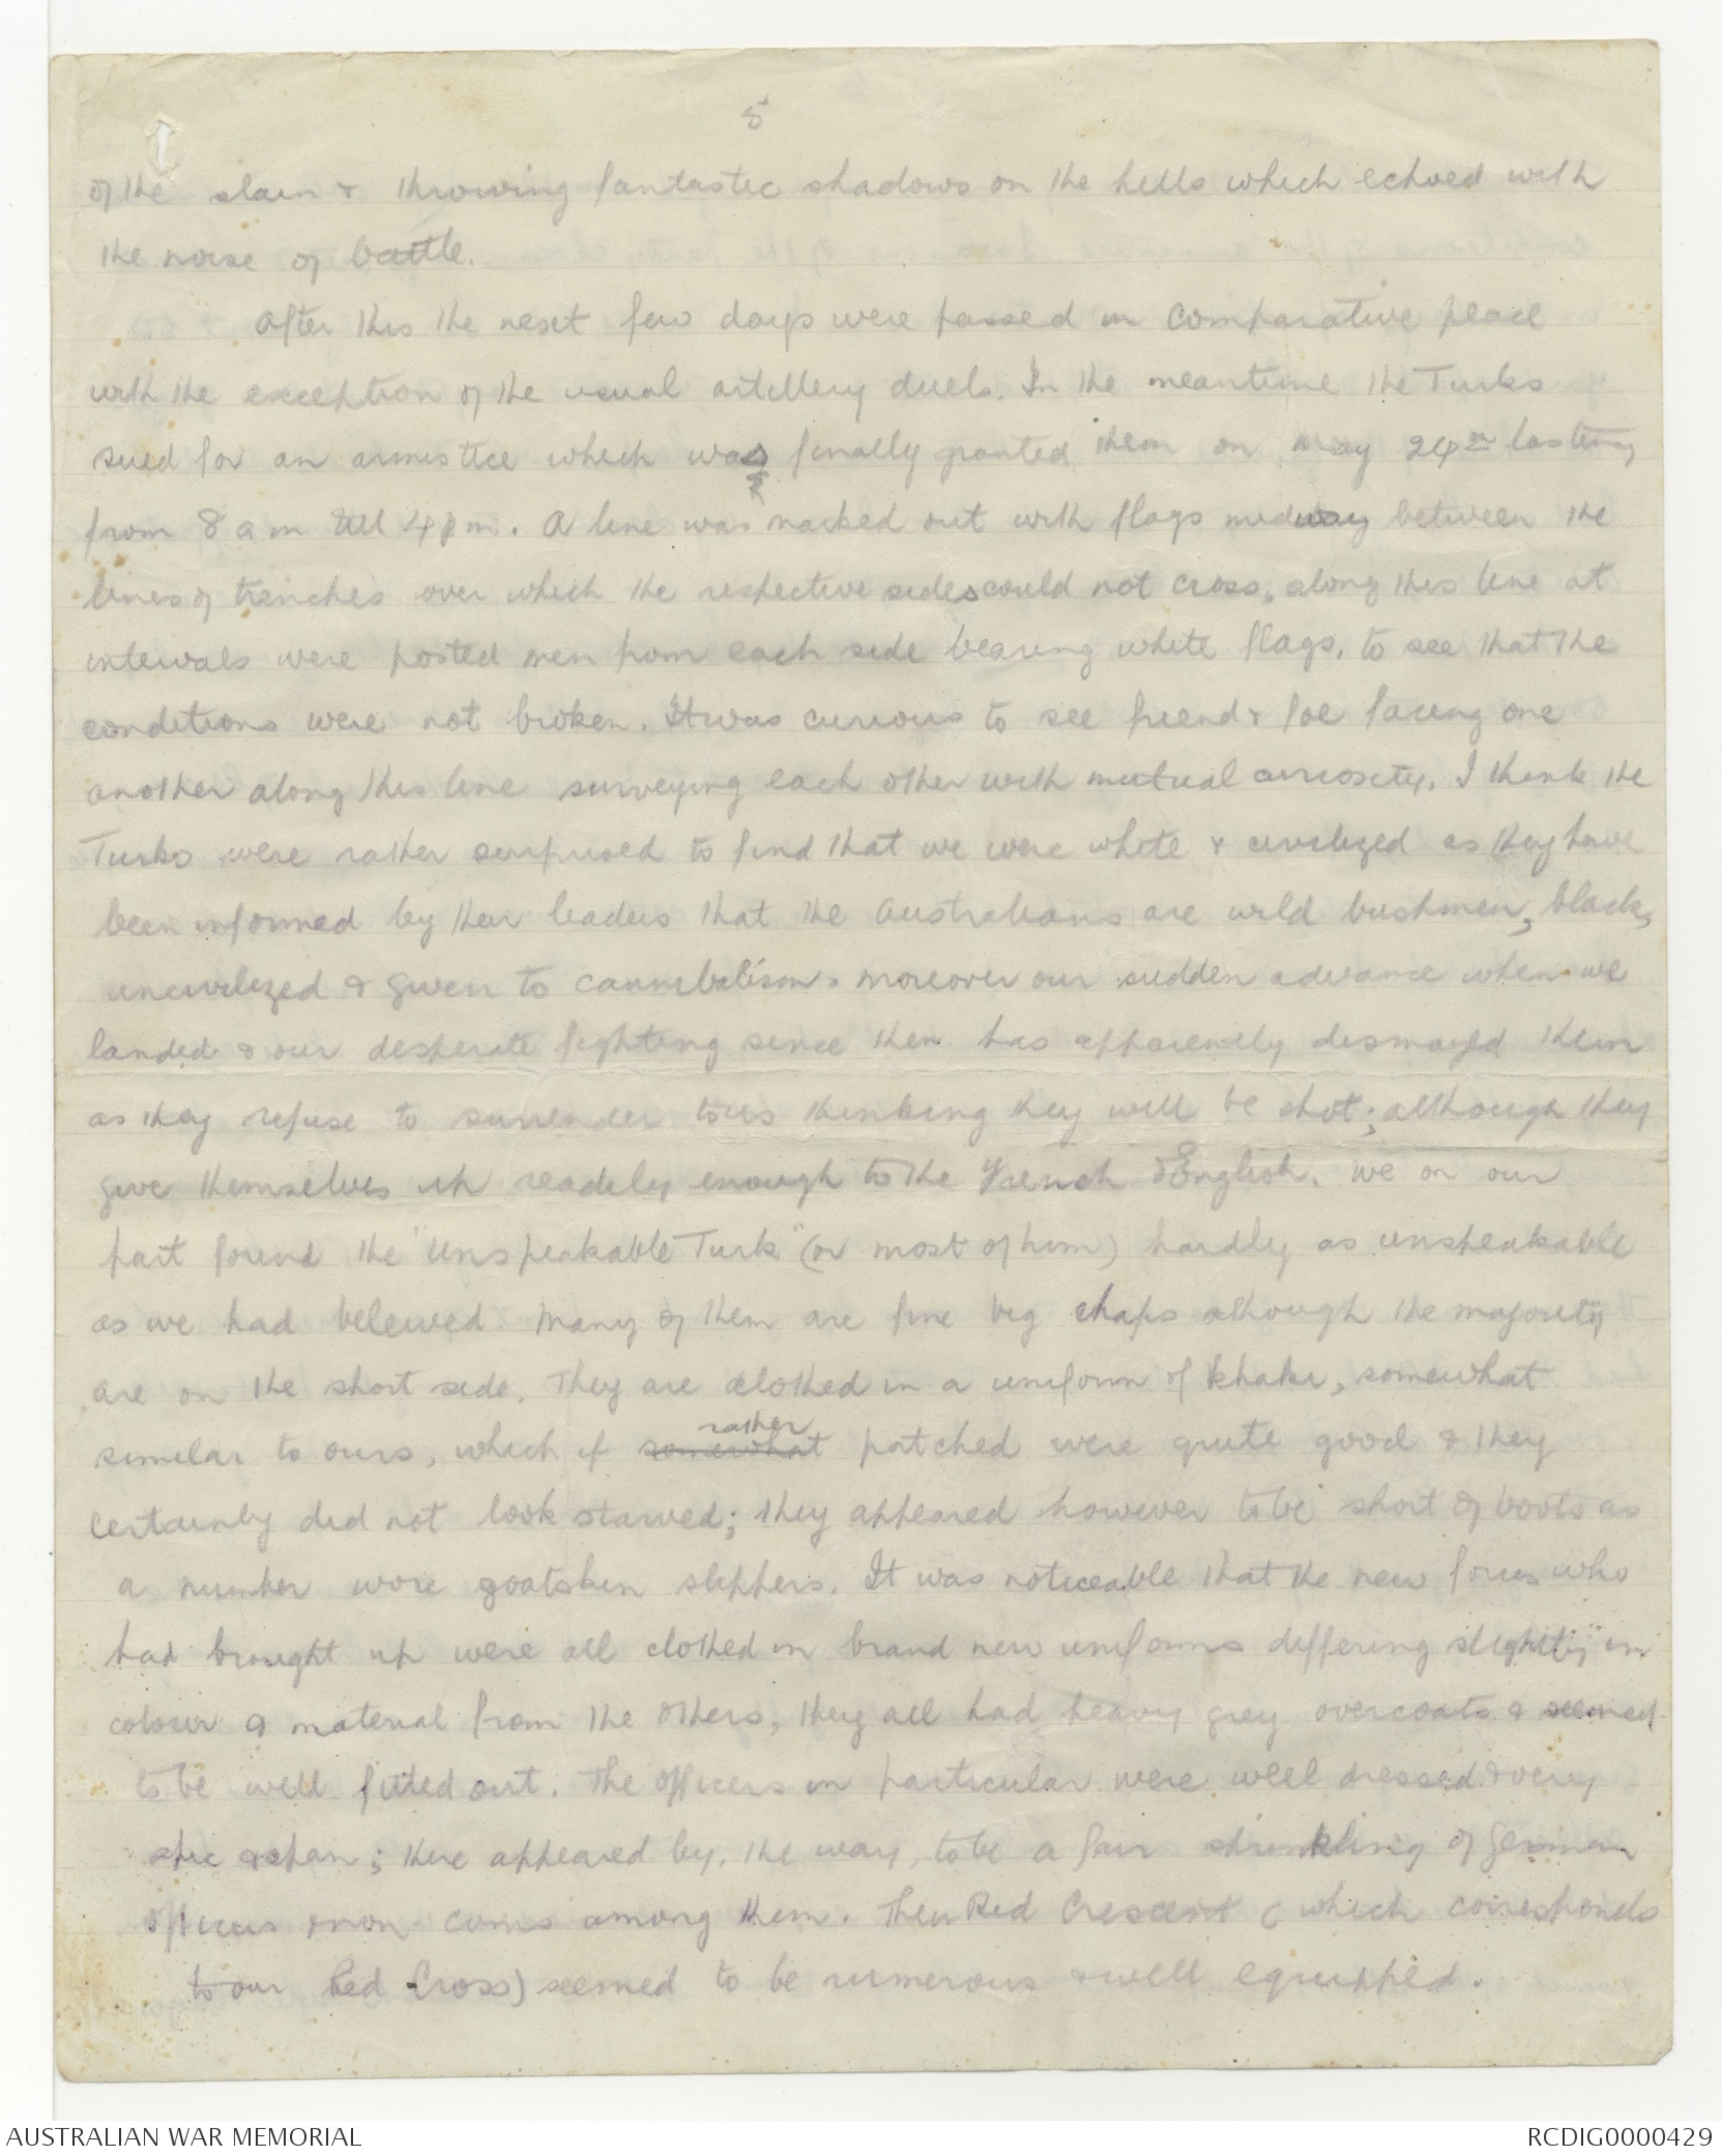 5
of the slain & throwing fantastic shadows on the hills which echoed with
the noise of battle.
After this the next few days were passed in comparative peace
with the exception of the usual artillery duels. In the meantime the Turks
sued for an armistice which was finally granted them on May 24th lasting
from 8 am till 4 pm. A line was marked out with flags midway between the
lines of trenches over which the respective sides could not cross, along this line at
intervals were posted men from each side bearing white flags, to see that the
conditions were not broken. It was curious to see friend & foe facing one
another along this line surveying each other with mutual curiosity. I think the
Turks were rather surprised to find that we were white & civilized as they have
been informed by their leaders that the Australians are wild bushmen, black,
uncivilized & given to cannibalism. Moreover our sudden advance when we
landed & our desperate fighting since then has apparently dismayed them
as they refuse to surrender to us thinking they will be shot; although they
give themselves up readily enough to the French & English. We on our
part found the "Unspeakable Turk" (or most of him) hardly as unspeakable
as we had believed. Many of them are fine big chaps although the majority
are on the short side. They are clothed in a uniform of khaki, somewhat
rather
similar to ours, which if somewhat patched were quite good & they
certainly did not look starved; they appeared however to be short of boots as
a number wore goatskin slippers. It was noticeable that the new forces who
had brought up were all clothed in brand new uniforms differing slightly in
colour & material from the others, they all had heavy grey overcoats & seemed
to be well fitted out. The officers in particular were well dressed & very
spic & span; there appeared by, the way, to be a fair sprinkling of German
officers & non-coms among them. Their Red Crescent (which corresponds
to our Red Cross) seemed to be numerous & well equipped.
AUSTRALIAN WAR MEMORIAL
RCDIG0000429